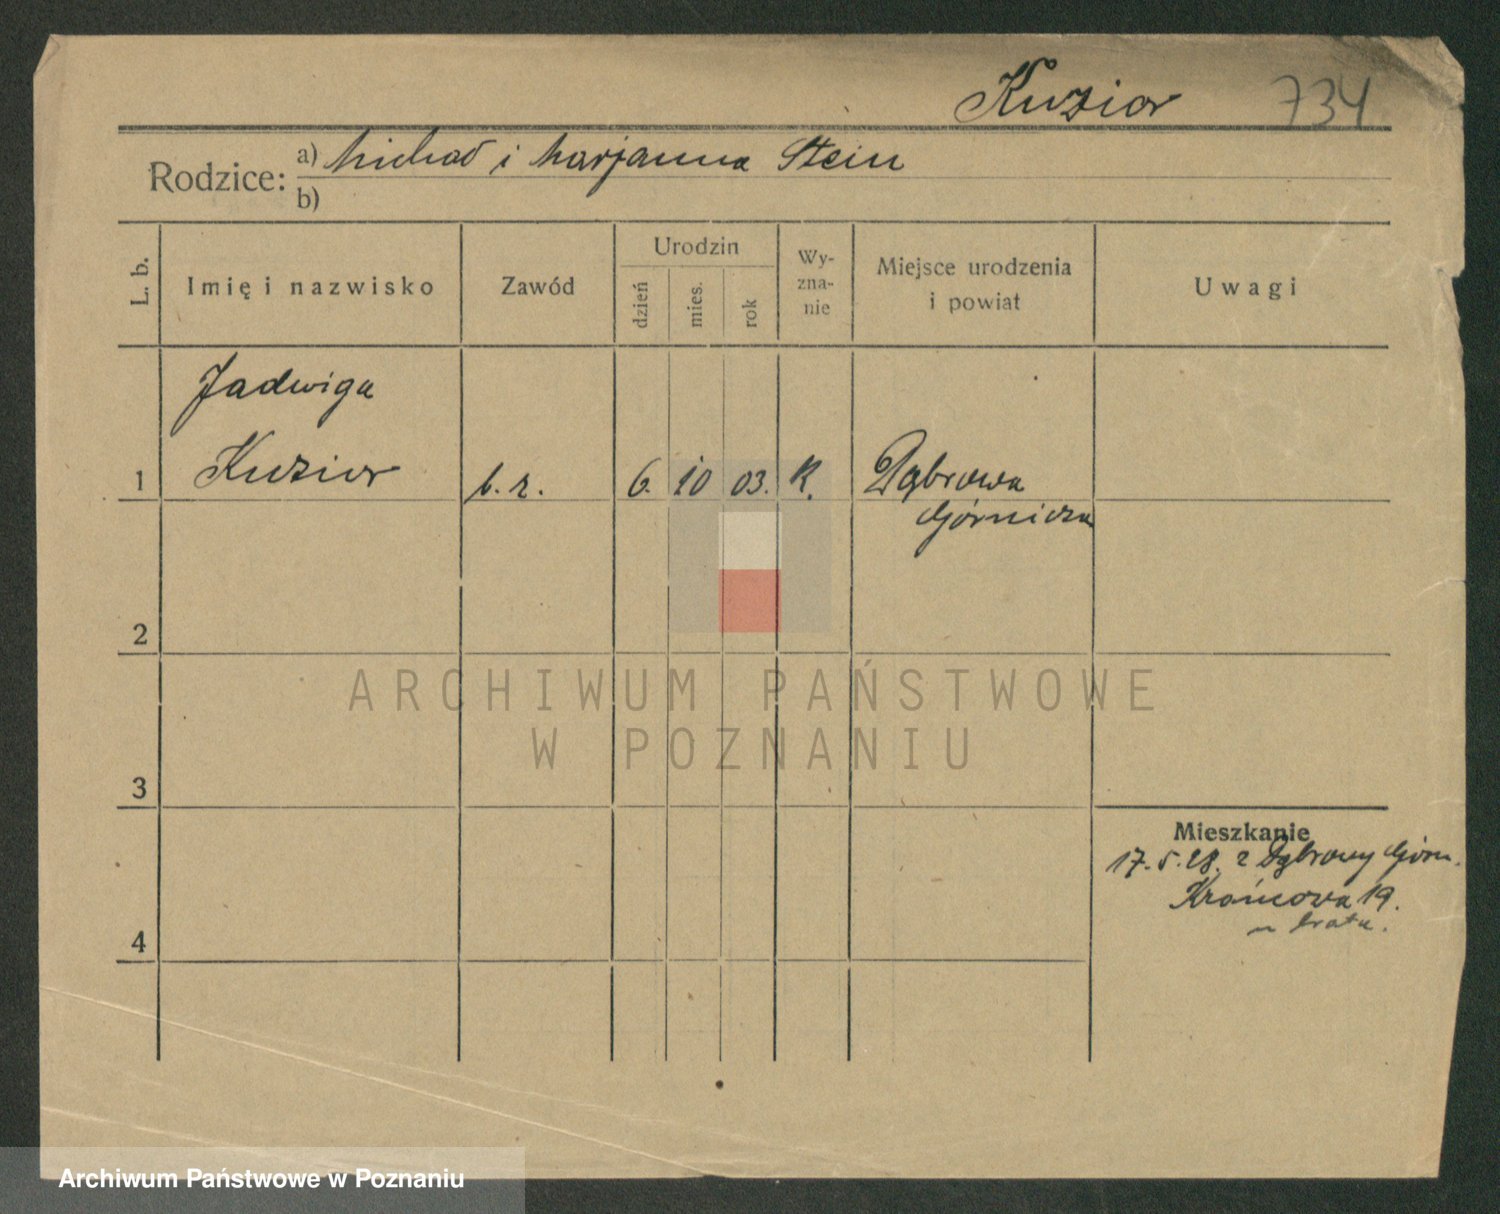 Kuzior 734
Rodzice: a) Michał i Marjanna Stein
b)
L. b. Imię i nazwisko Zawód Urodzin dzień mies. rok Wy-zna-nie Miejsce urodzenia i powiat Uwagi
Jadwiga
1 Kuzior b. z. 6. 10 03. K. Dąbrowa
Górnicza
2
ARCHIWUM PAŃSTWOWE
W POZNANIU
3
Mieszkanie
17. 5. 28. z Dąbrowy Górn.
Krańcowa 19.
u brata.
4
Archiwum Państwowe w Poznaniu